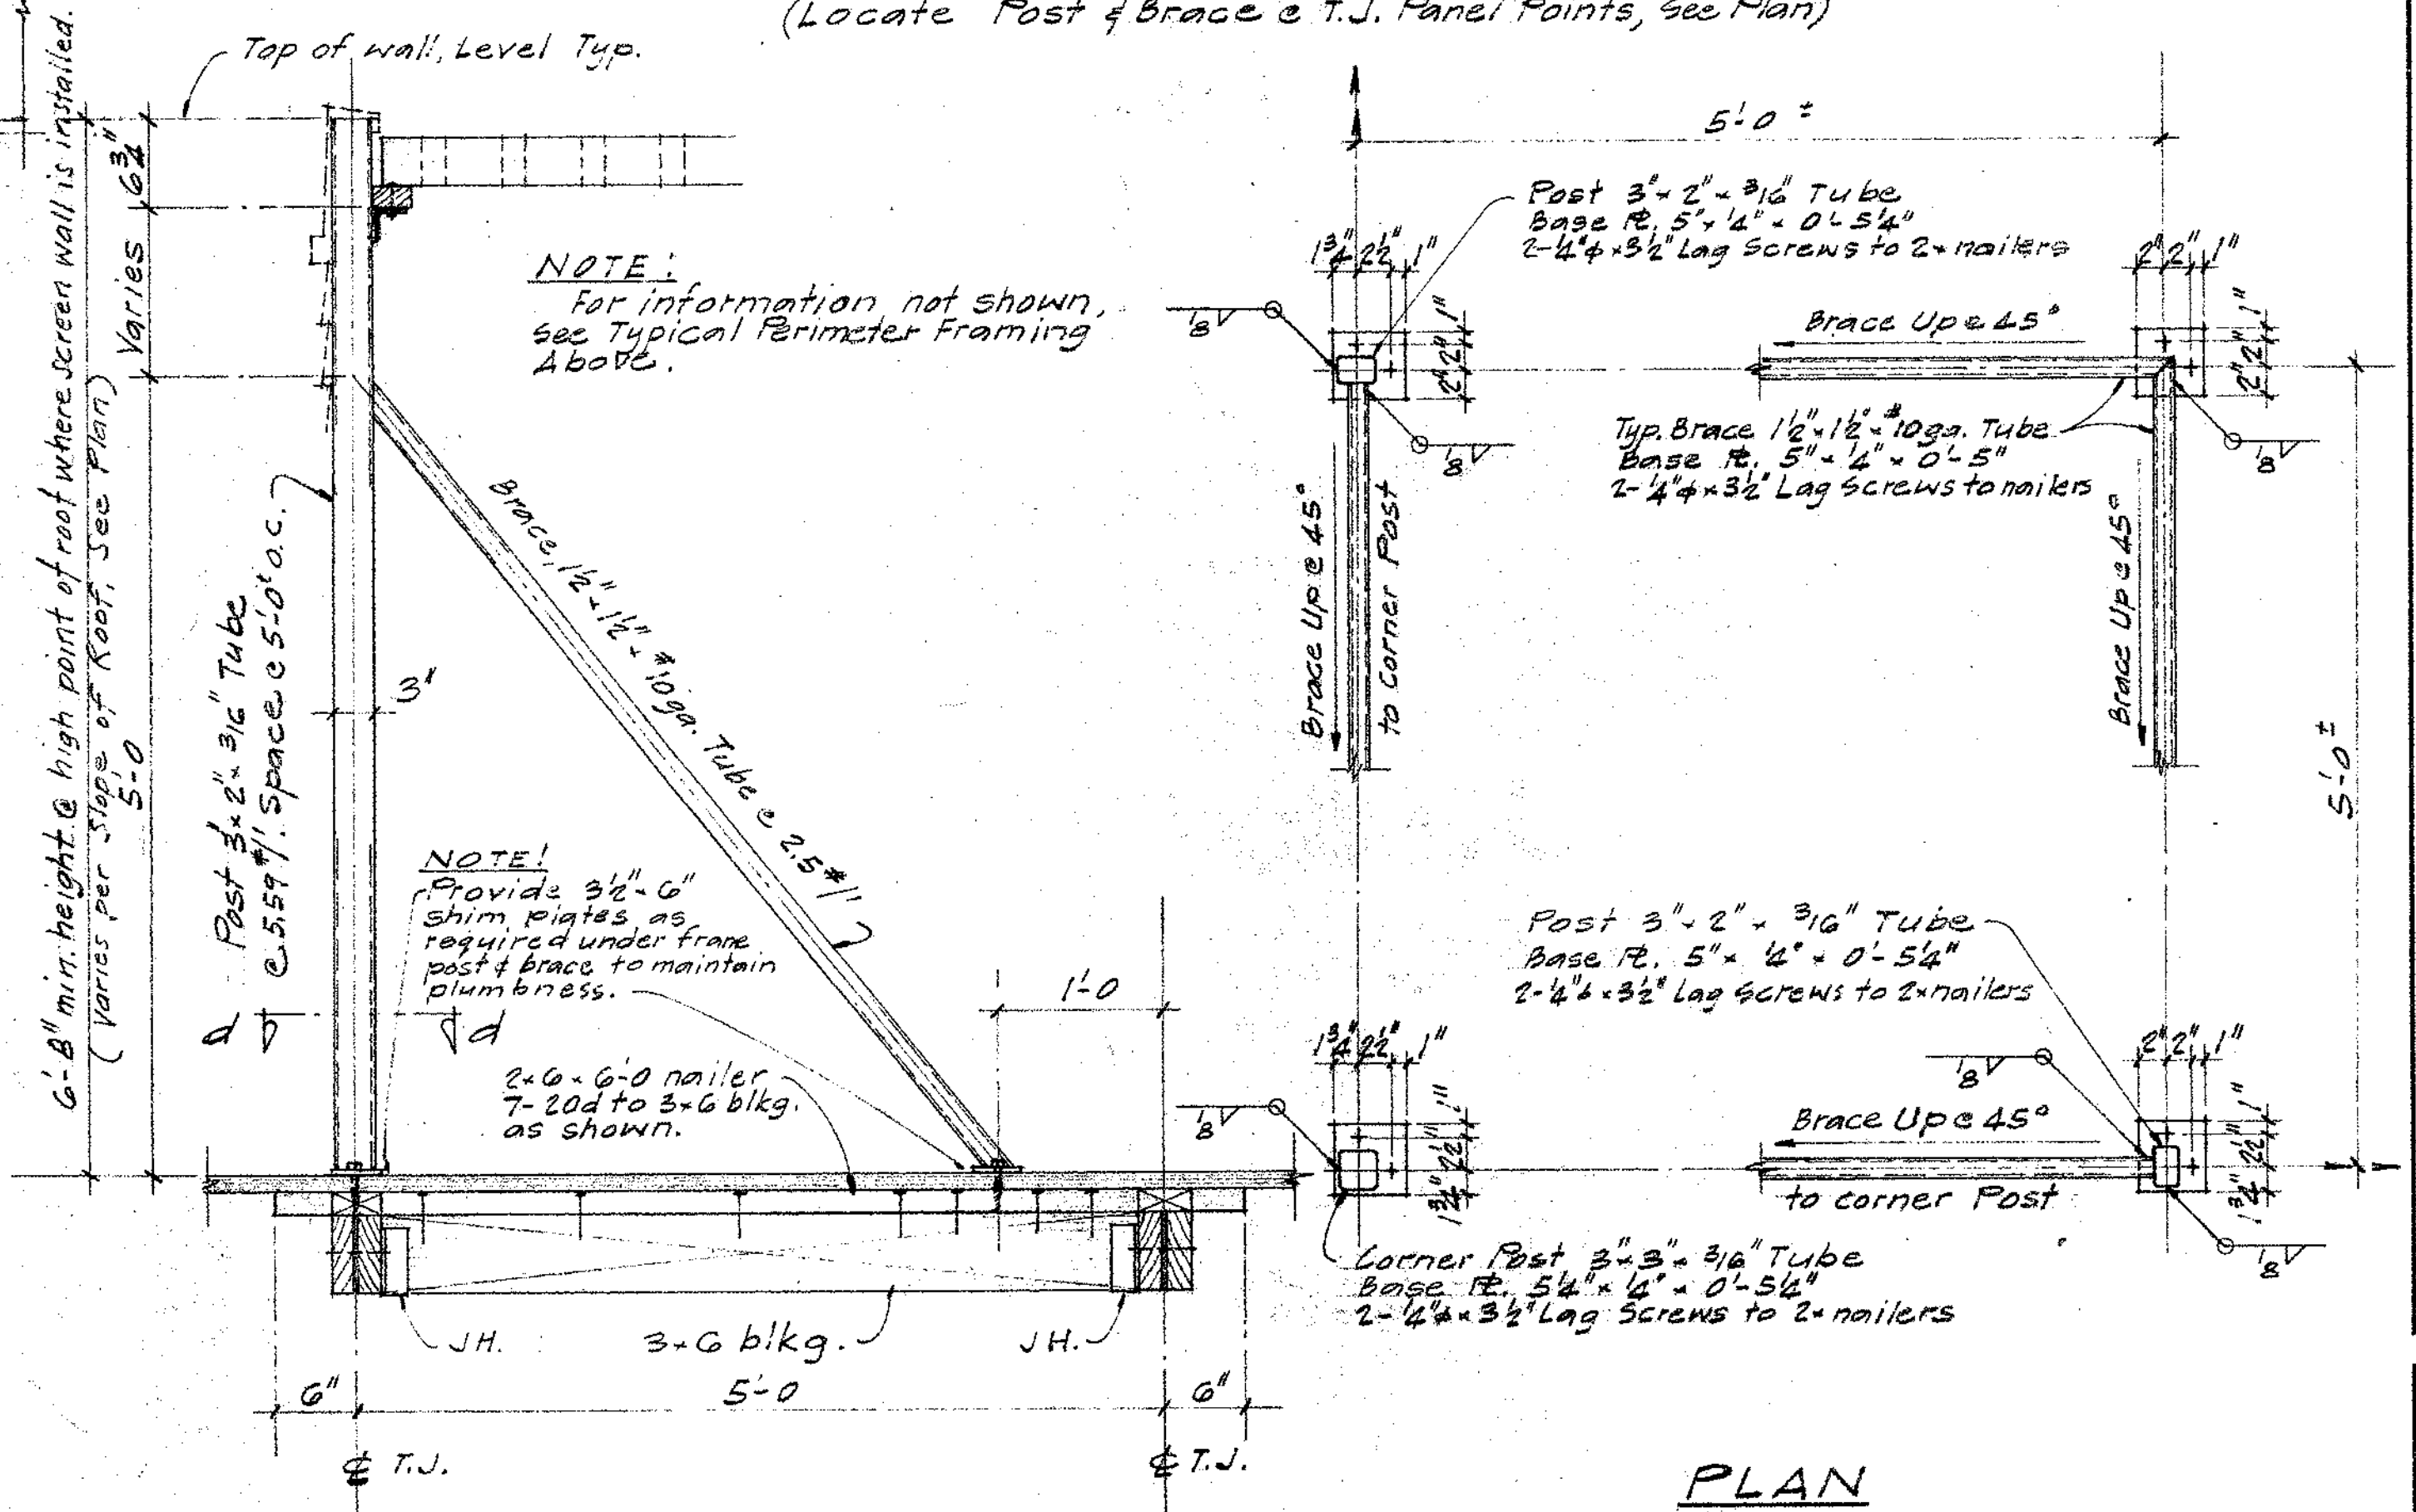 (Locate Post & Brace @ T.J. Panel Points, see Plan)
Top of wall, Level Typ.
6'-8" min. height @ high point of roof where screen wall is installed.
(Varies per Slope of Roof, See Plan)
6 3/4"
Varies
5'-0
NOTE:
For information not shown,
see Typical Perimeter Framing
Above.
Post 3"x 2"x 3/16" Tube
@ 5.59#/'. Space @ 5'-0"± o.c.
3"
Brace, 1 1/2" x 1 1/2" x #10ga. Tube @ 2.5#/'
NOTE!
Provide 3 1/2" x 6"
shim plates as
required under frame
post & brace to maintain
plumbness.
d
d
1'-0
2x6x6'-0 nailer
7-20d to 3x6 blkg.
as shown.
J.H.
3x6 blkg.
J.H.
6"
5'-0
6"
℄ T.J.
℄ T.J.
5'-0 ±
Post 3"x 2"x 3/16" Tube
Base ℞. 5"x 1/4" x 0'-5 1/4"
2-1/4"ϕ x 3 1/2" Lag Screws to 2x nailers
1 3/4" 2 1/2" 1"
2" 2" 1"
1/8
1/8
Brace Up @ 45°
to Corner Post
2" 2" 1"
2" 2" 1"
Brace Up @ 45°
Typ. Brace 1 1/2"x 1 1/2"x #10ga. Tube
Base ℞. 5"x 1/4" x 0'-5"
2-1/4"ϕ x 3 1/2" Lag Screws to nailers
1/8
Brace Up @ 45°
5'-0 ±
Post 3"x 2" x 3/16" Tube
Base ℞. 5"x 1/4" x 0'-5 1/4"
2-1/4"ϕ x 3 1/2" Lag Screws to 2x nailers
1 3/4" 2 1/2" 1"
1 3/4" 2 1/2" 1"
1/8
2" 2" 1"
1 3/4" 2 1/2" 1"
1/8
Brace Up @ 45°
to corner Post
1/8
Corner Post 3"x 3"x 3/16" Tube
Base ℞. 5 1/4"x 1/4" x 0'-5 1/4"
2-1/4"ϕ x 3 1/2" Lag Screws to 2x nailers
PLAN